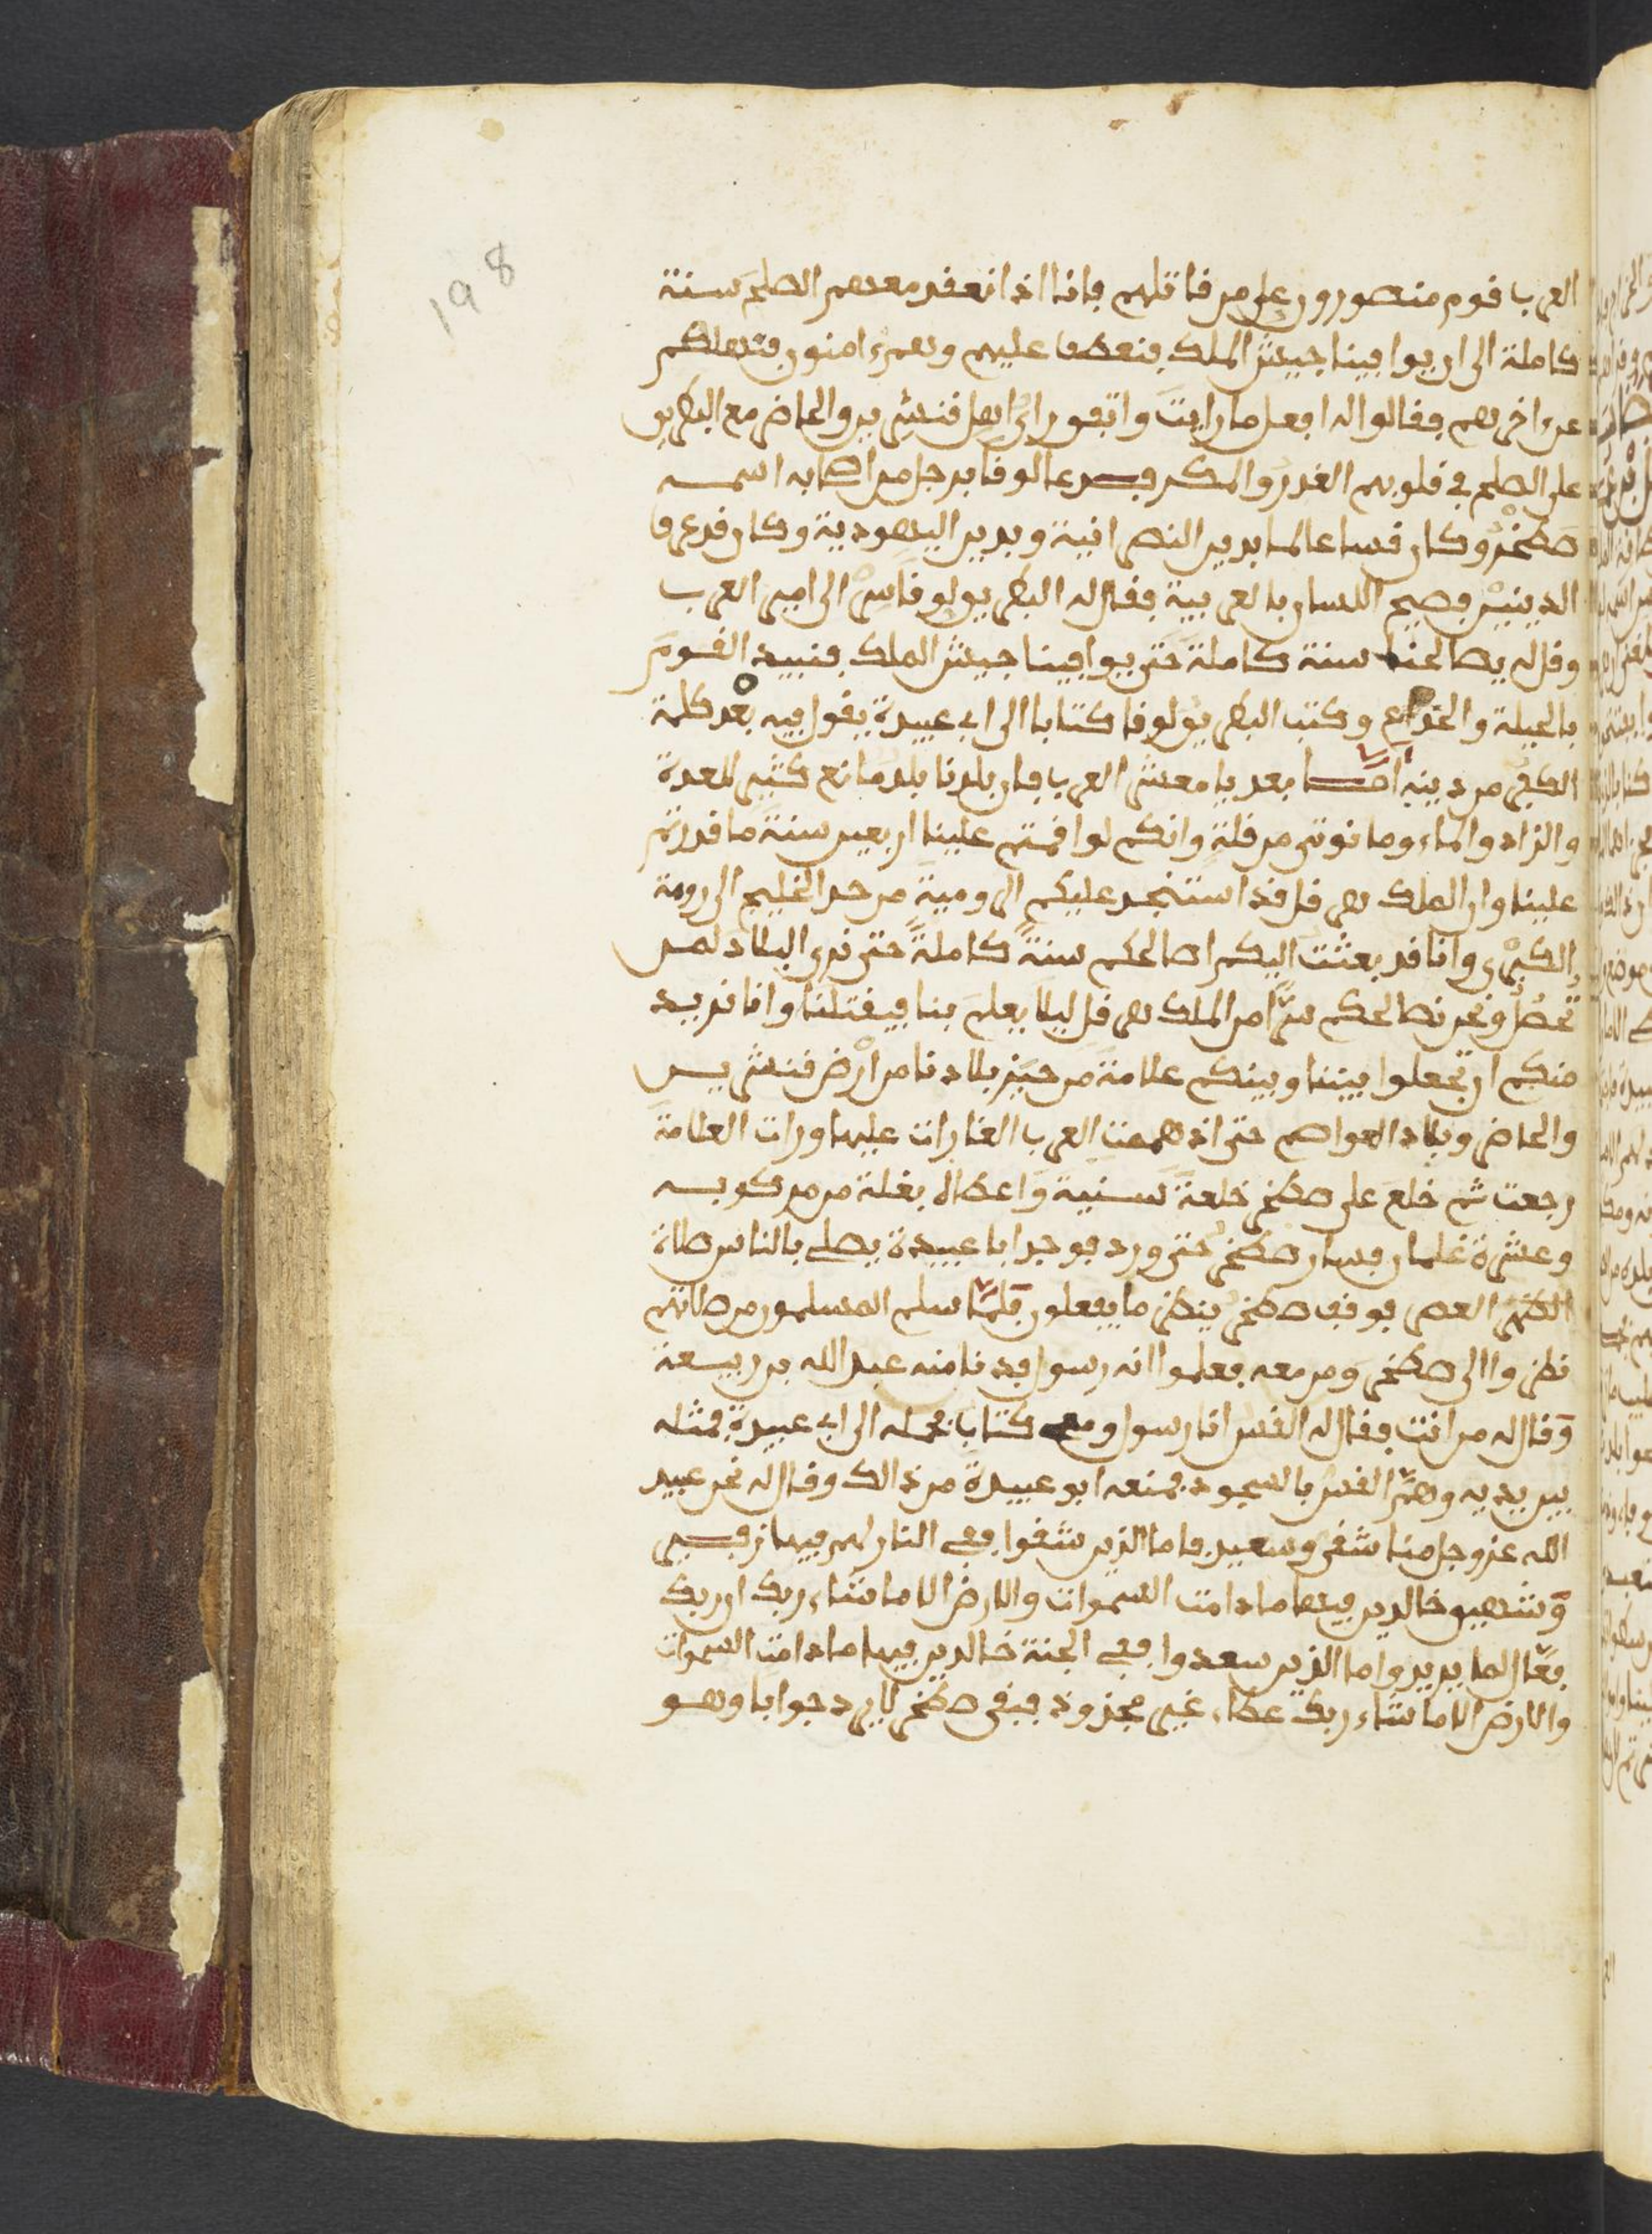 198
العرب قوم منصورون على من قاتلهم فانا اذا نعقد معهم الصلح سنة
كاملة الى ان يوافينا جيش الملك فنعطف عليهم وهم ءامنون فنهلكهم
عن ءاخرهم فقالوا له افعل ما رايت واتفق راي اهل قنشرين والحاضر مع البطريق
على الصلح في قلوبهم الغدر والمكر فدعا لوقا برجل من اصحابه اسمه
صطخر وكان قسا عالما بدين النصرانية وبدين اليهودية وكان قد عرف
الدينين فصيح اللسان بالعربية فقال له البطريق لوقا سر الى امير العرب
وقل له يصالحنا سنة كاملة حتى يوافينا جيش الملك فنبيد القوم
بالحيلة والخداع وكتب البطريق لوقا كتابا الى ابي عبيدة يقول فيه بعد كلمة
الكفر من دينه اما بعد يا معشر العرب فان بلدنا بلد مانع كثير العدة
والزاد والماء وما نوتى من قلة وانكم لو اقمتم علينا اربعين سنة ما قدرتم
علينا وان الملك هرقل قد استنجد عليكم الرومية من حد الخليج الى رومة
الكبرى وانا قد بعثت اليكم اصالحكم سنة كاملة حتى نرى البلاد لمن
تحصل ونحن نصالحكم سرا من الملك هرقل ليلا يعلم بنا فيقتلنا وانا نريد
منكم ان تجعلوا بيننا وبينكم علامة من حيز بلادنا من ارض قنشرين
والحاضر وبلاد العواصم حتى اذ همت العرب الغارات عليها ورات العلامة
رجعت ثم خلع على صطخر خلعة سنية واعطاه بغلة من مركوبه
وعشرة غلمان فسار صطخر حتى ورد فوجد ابا عبيدة يصلي بالناس صلاة
العصر فوقف صطخر ينظر ما يفعلون فلما سلم المسلمون من صلاتهم
نظروا الى صطخر ومن معه فعلموا انه رسول فدنا منه عبد الله بن ربيعة
وقال له من انت فقال له القس انا رسول ومعي كتاب فحمله الى ابي عبيدة فمثله
بين يديه وهم القس بالسجود فمنعه ابو عبيدة من ذالك وقال له نحن عبيد
الله عز وجل منا شقي وسعيد فاما الذين شقوا ففي النار لهم فيها زفير
وشهيق خالدين فيها ما دامت السموات والارض الا ما شاء ربك ان ربك
فعال لما يريد واما الذين سعدوا ففي الجنة خالدين فيها ما دامت السموات
والارض الا ما شاء ربك عطاء غير مجذوذ فبقي صطخر لا يرد جوابا وهو